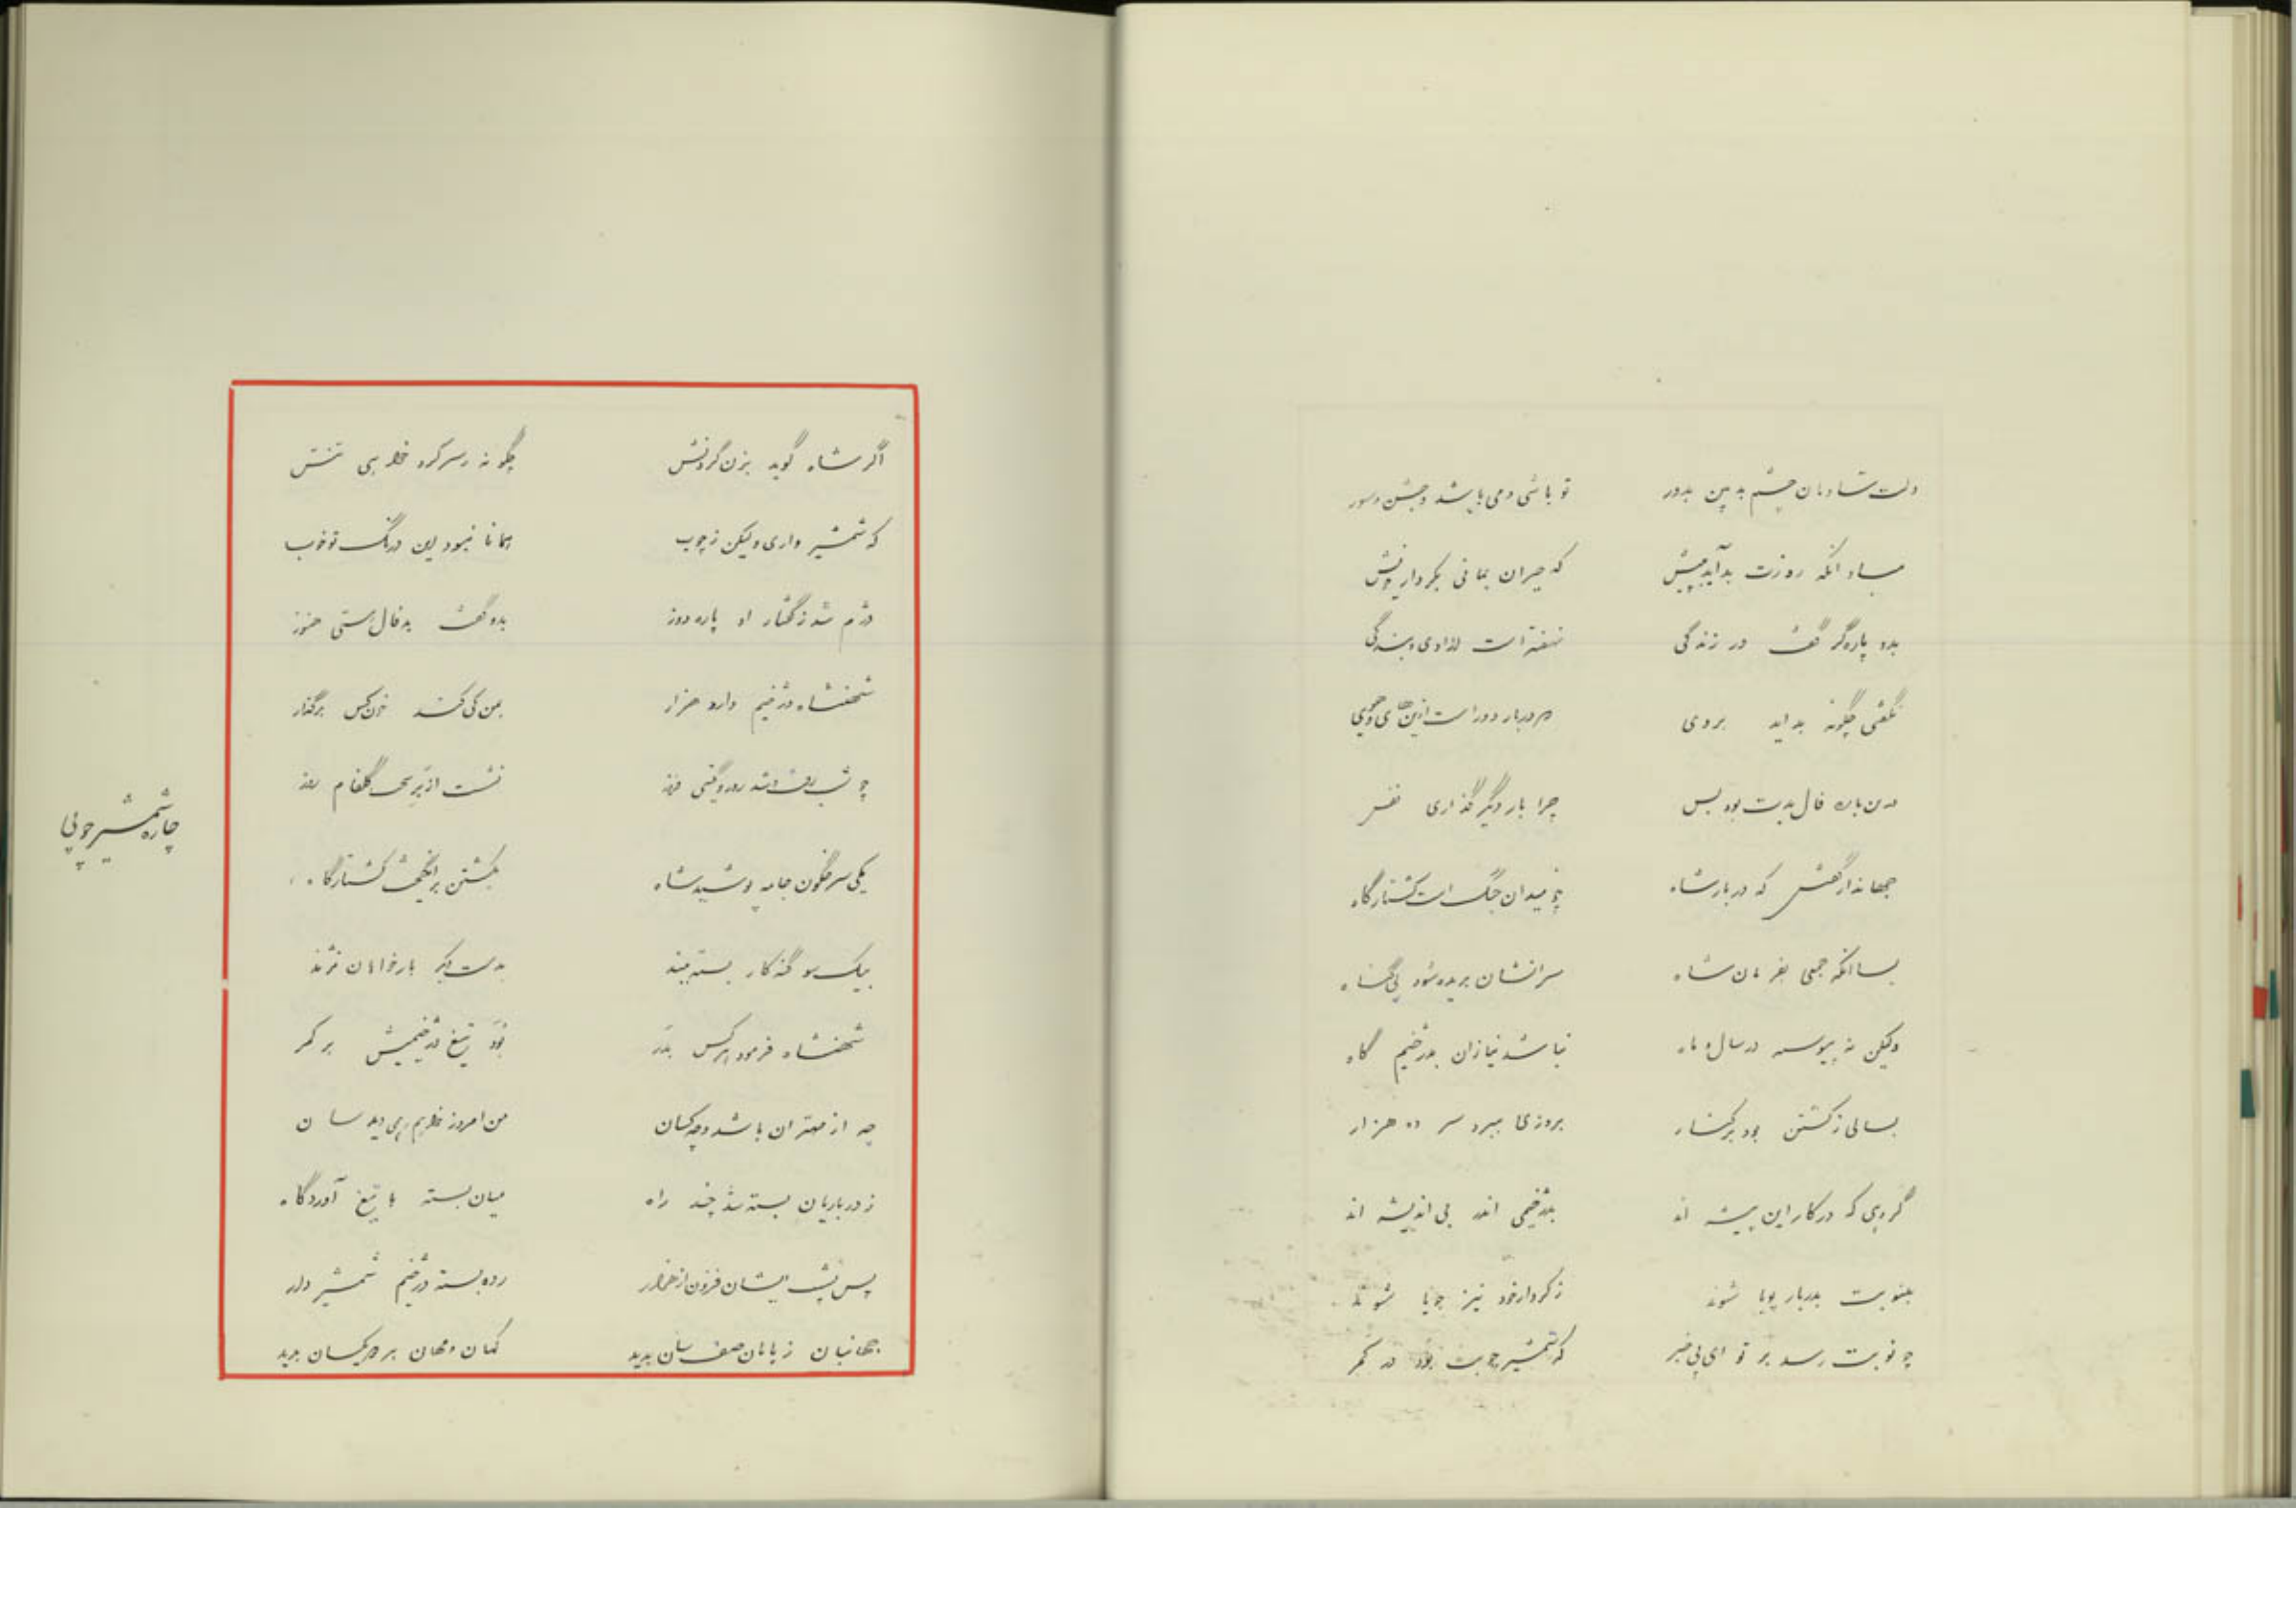 دلت شادمان چشم بدبین بدور تو باشی و می باشد و جشن و سور
مباد آنکه روزت بد آید به پیش که حیران بمانی بکردار خویش
بدو پاره‌گر گفت در زندگی نهفته است آزادی و بندگی
نگفتی چگونه بد آید بروی در دربار دور است ازین های و هوی
فال بدت بود بس چرا بار دیگر گذاری نفس
جهاندار گفتش که دربار شاه چو میدان جنگ است کشتارگاه
بسا آنکه جمعی بفرمان شاه سرانشان بریده شود بی‌گناه
ولیکن نه پیوسته در سال و ماه نباشد نیازان بدرخیم گاه
بسالی ز کشتن بود برکنار بروزی ببرد سر ده هزار
گروهی که در کار این پیشه اند بدژخیمی اندر بی اندیشه اند
بنوبت بدربار پویا شوند ز کردار خود نیز جویا شوند
چو نوبت رسد بر تو ای بی خبر که شمشیر چوبت بود در کمر
اگر شاه گوید بزن گردنش چگونه ز سر کرد خواهی تنش
که شمشیر داری ولیکن ز چوب همانا نبود این درنگ تو خوب
دژم شد ز گفتار او پاره دوز بدو گفت بدفال هستی هنوز
شهنشاه دژخیم دارد هزار بمن کی کند خون کس برگذار
چو شب رفت و شد روز گیتی فروز نشست از بر تخت گلفام روز
یکی سرخگون جامه پوشید شاه بکشتن برانگیخت کشتارگاه
بیک سو گنه کار بسته ببند بدست دگر بارخوانان نژند
شهنشاه فرمود هر کس بدر بود تیغ دژخیمیش بر کمر
چه از مهتران باشد و چه کسان من امروز خواهم همی دید سان
ز درباریان بسته شد چند راه میان بسته با تیغ آوردگاه
پس پشت ایشان فزون از هزار رده بسته دژخیم شمشیر دار
جهانبان ز بالای صف سان بدید کهان و مهان بر در یکسان بدید
چاره شمشیر چوبی